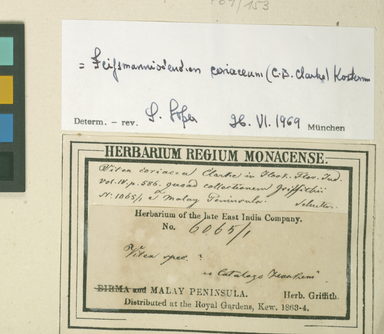 = Teijsmanniodendron coriaceum (C.B. Clarke) Kosterm
Determ. – rev. 26. VI. 1969 München
HERBARIUM REGIUM MONACENSE.
Vitex coriacea Clarke in Hook. Flor. Ind.
vol. IV. p. 586. quoad collectionem Griffithii
N. 6065/1 e Malay Peninsula.
Herbarium of the late East India Company.
No. 6065/1
Vitex spec. ?
BIRMA and MALAY PENINSULA. Herb. Griffith.
Distributed at the Royal Gardens, Kew. 1863-4.